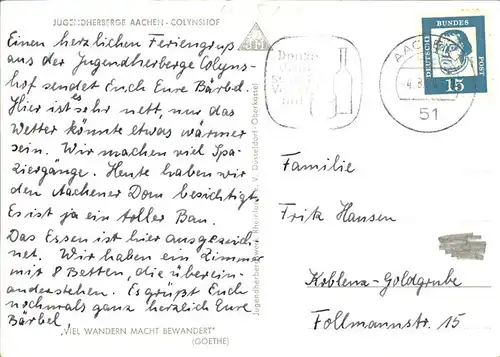 JUGENDHERBERGE AACHEN - COLYNSHOF
Einen herzlichen Feriengruß
aus der Jugendherberge Colyns-
hof sendet Euch Eure Bärbel.
Hier ist es sehr nett, nur das
Wetter könnte etwas wärmer
sein. Wir machen viel Spa-
ziergänge. Heute haben wir
den Aachener Dom besichtigt.
Es ist ja ein toller Bau.
Das Essen ist hier ausgezeich-
net. Wir haben ein Zimmer
mit 8 Betten, die überein-
anderstehen. Es grüßt Euch
nochmals ganz herzlich Eure
Bärbel,
„VIEL WANDERN MACHT BEWANDERT"
(GOETHE)
Jugendherbergswerk Rheinland e. V. Düsseldorf-Oberkassel
Denke
mit
AACHEN
51
DEUTSCHE
BUNDES
POST
15
Familie
Fritz Hansen
Koblenz-Goldgrube
Follmannstr. 15